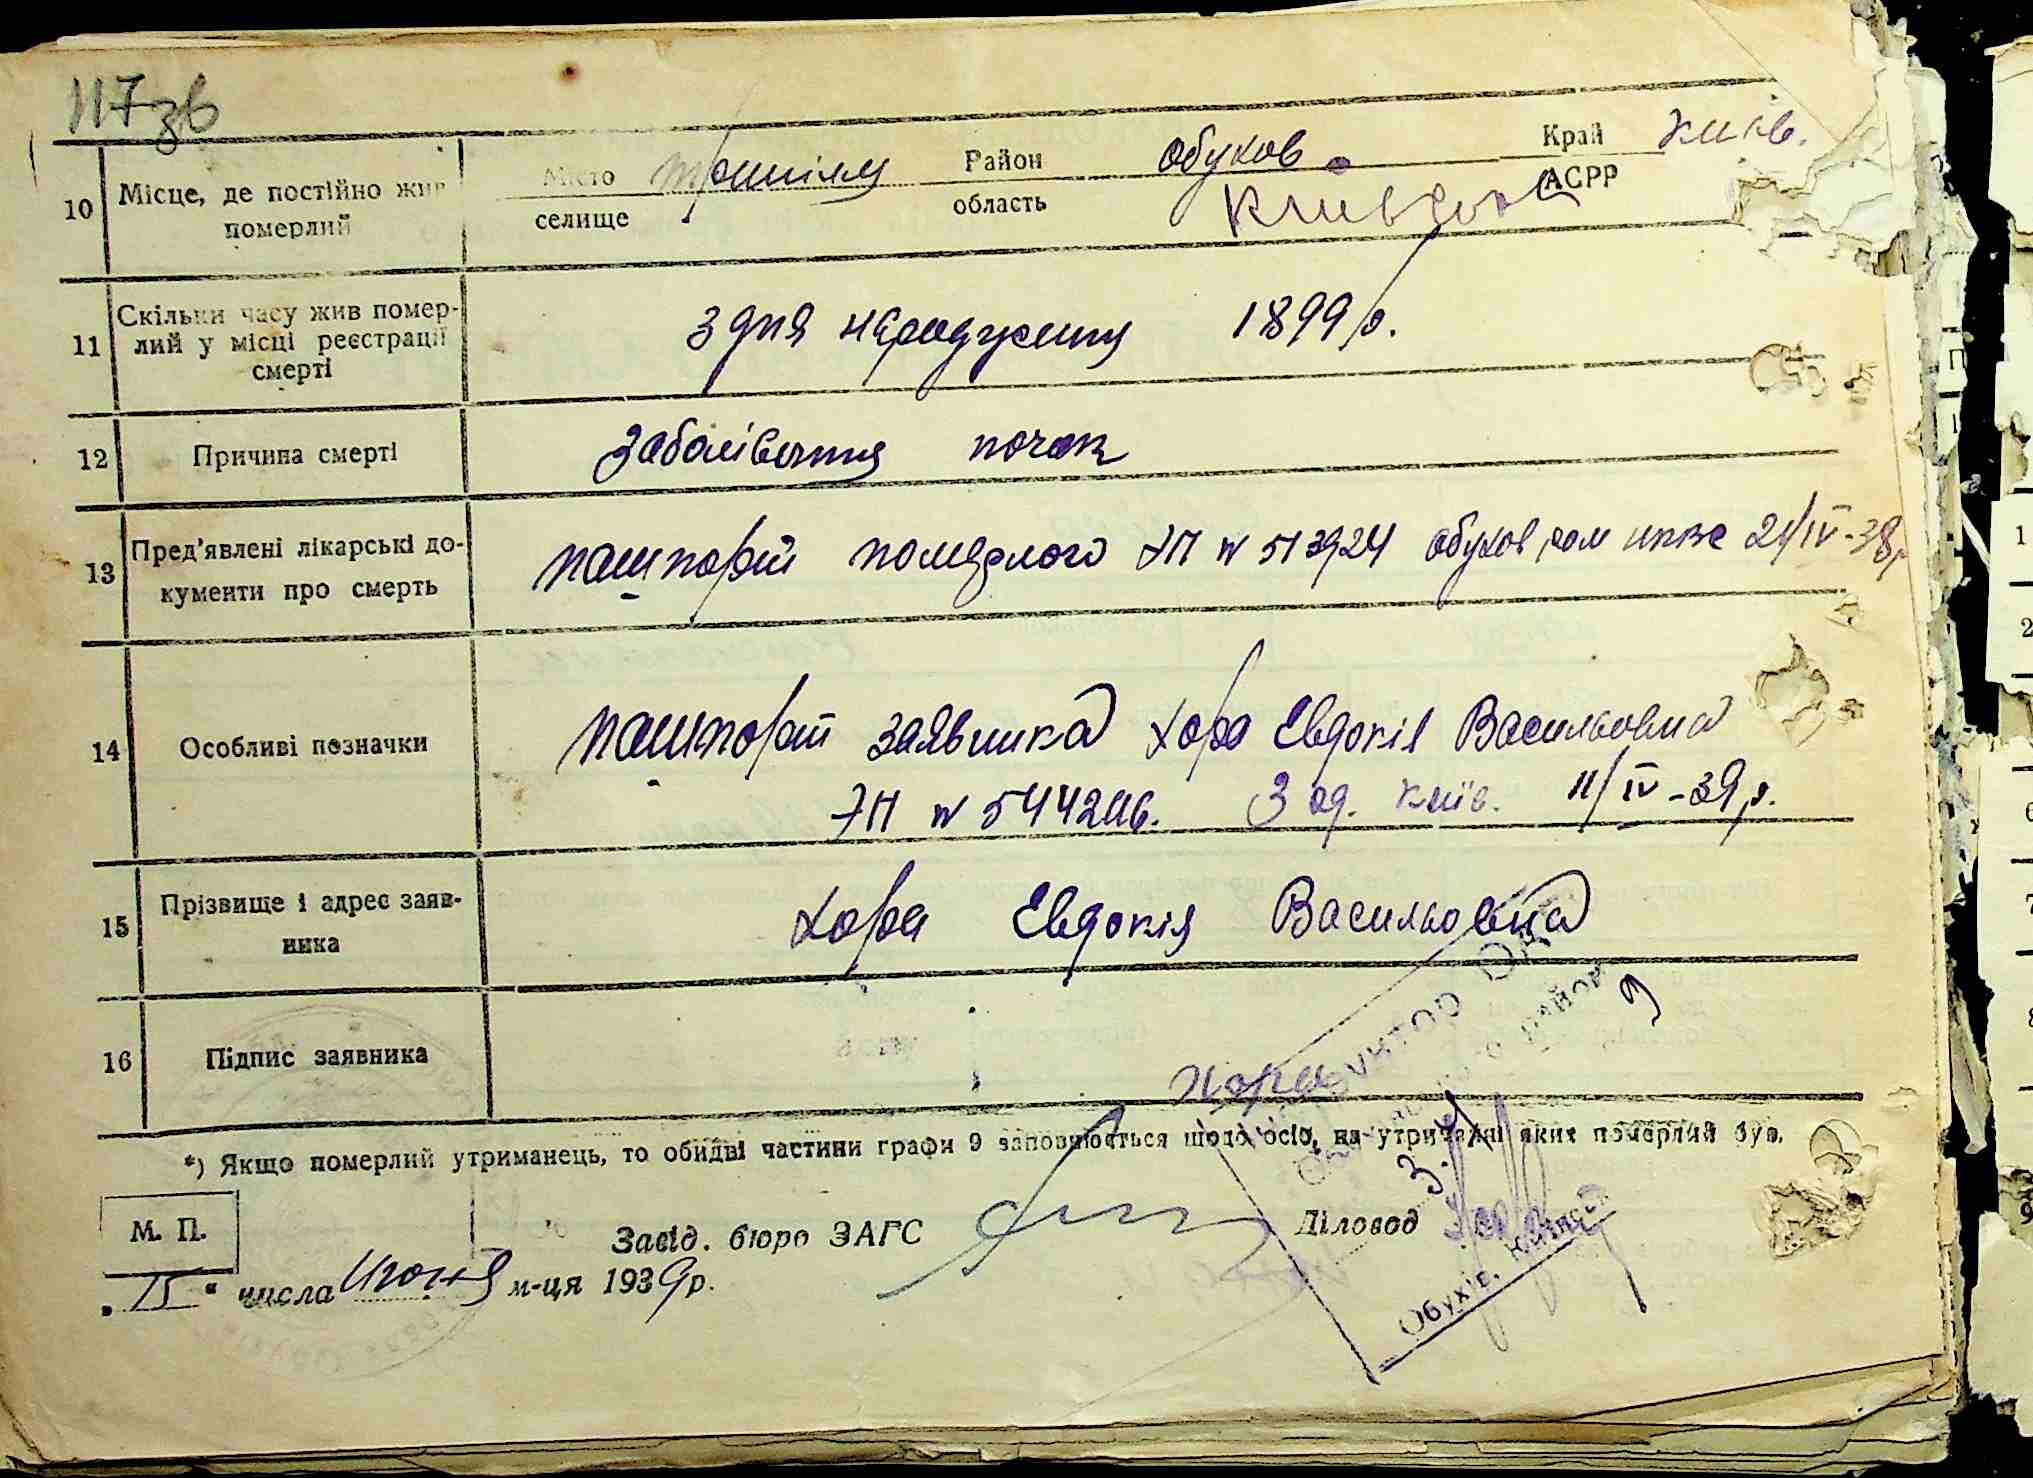 117зв
10 Місце, де постійно жив померлий
Місто селище Трипілля Район область Обухов. Край АСРР Київ.
Київської
11 Скільки часу жив помер-
лий у місці реєстрації
смерті
З дня народження 1899 р.
12 Причина смерті
Заболівання почек
13 Пред'явлені лікарські до-
кументи про смерть
пашпорт померлого ЭП № 513924 Обухов 21/IV-38р
14 Особливі позначки
пашпорт заявника Хора Евдокія Васильовна
ЭП № 544246. 3 од. Київ. 11/IV-39 р.
15 Прізвище і адрес заяв-
ника
Хора Евдокія Васильовна
16 Підпис заявника
Хора
*) Якщо померлий утриманець, то обидві частини графи 9 заповнюється щодо осіб, на утриманні яких померлий був.
М. П.
Завід. бюро ЗАГС
Діловод
„15“ числа Июня м-ця 1939р.
Обухів, Київської